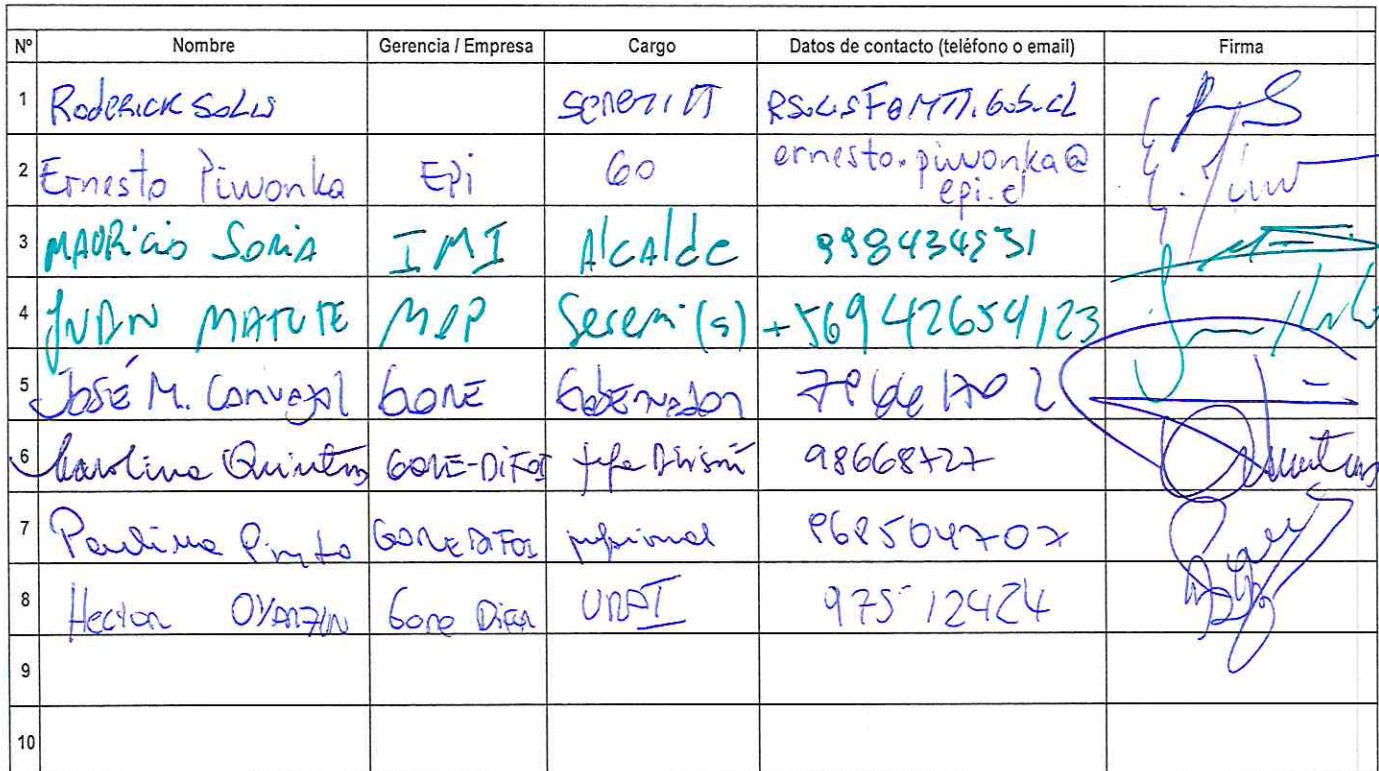 Nº Nombre Gerencia / Empresa Cargo Datos de contacto (teléfono o email) Firma
1 Roderick Solis Seremi TT
2 Ernesto Piwonka Epi GO ernesto.piwonka@
epi.cl
3 Mauricio Soria IMI Alcalde 998434531
4 Juan Matute MOP Seremi (s) +56942654123
5 José M. Carvajal GORE Gobernador
6 Carolina Quinteros GORE-DIFOI Jefe División 98668727
7 Paulina Pinto GORE DIFOI profesional
8 Hector Oyarzun Gore URAI 975 12424
9
10